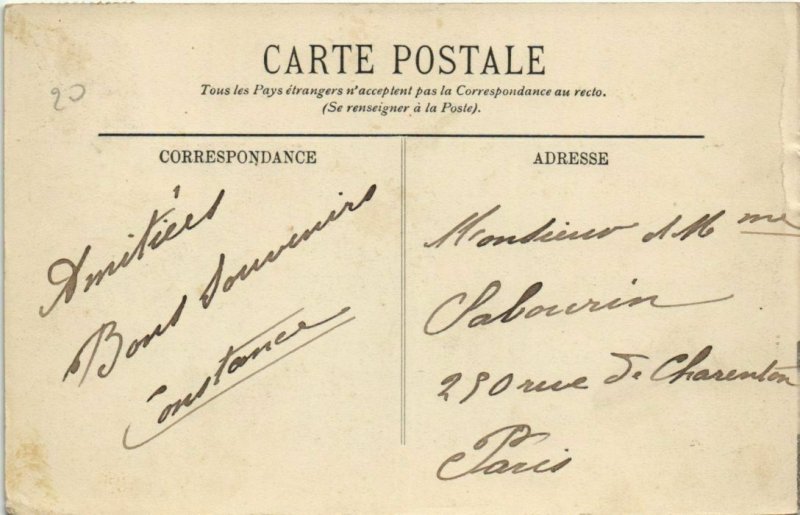 20
CARTE POSTALE
Tous les Pays étrangers n'acceptent pas la Correspondance au recto.
(Se renseigner à la Poste).
CORRESPONDANCE
Amitiées
Bons Souvenirs
Constance
ADRESSE
Monsieur & Mme
Sabourin
250 rue de Charenton
Paris